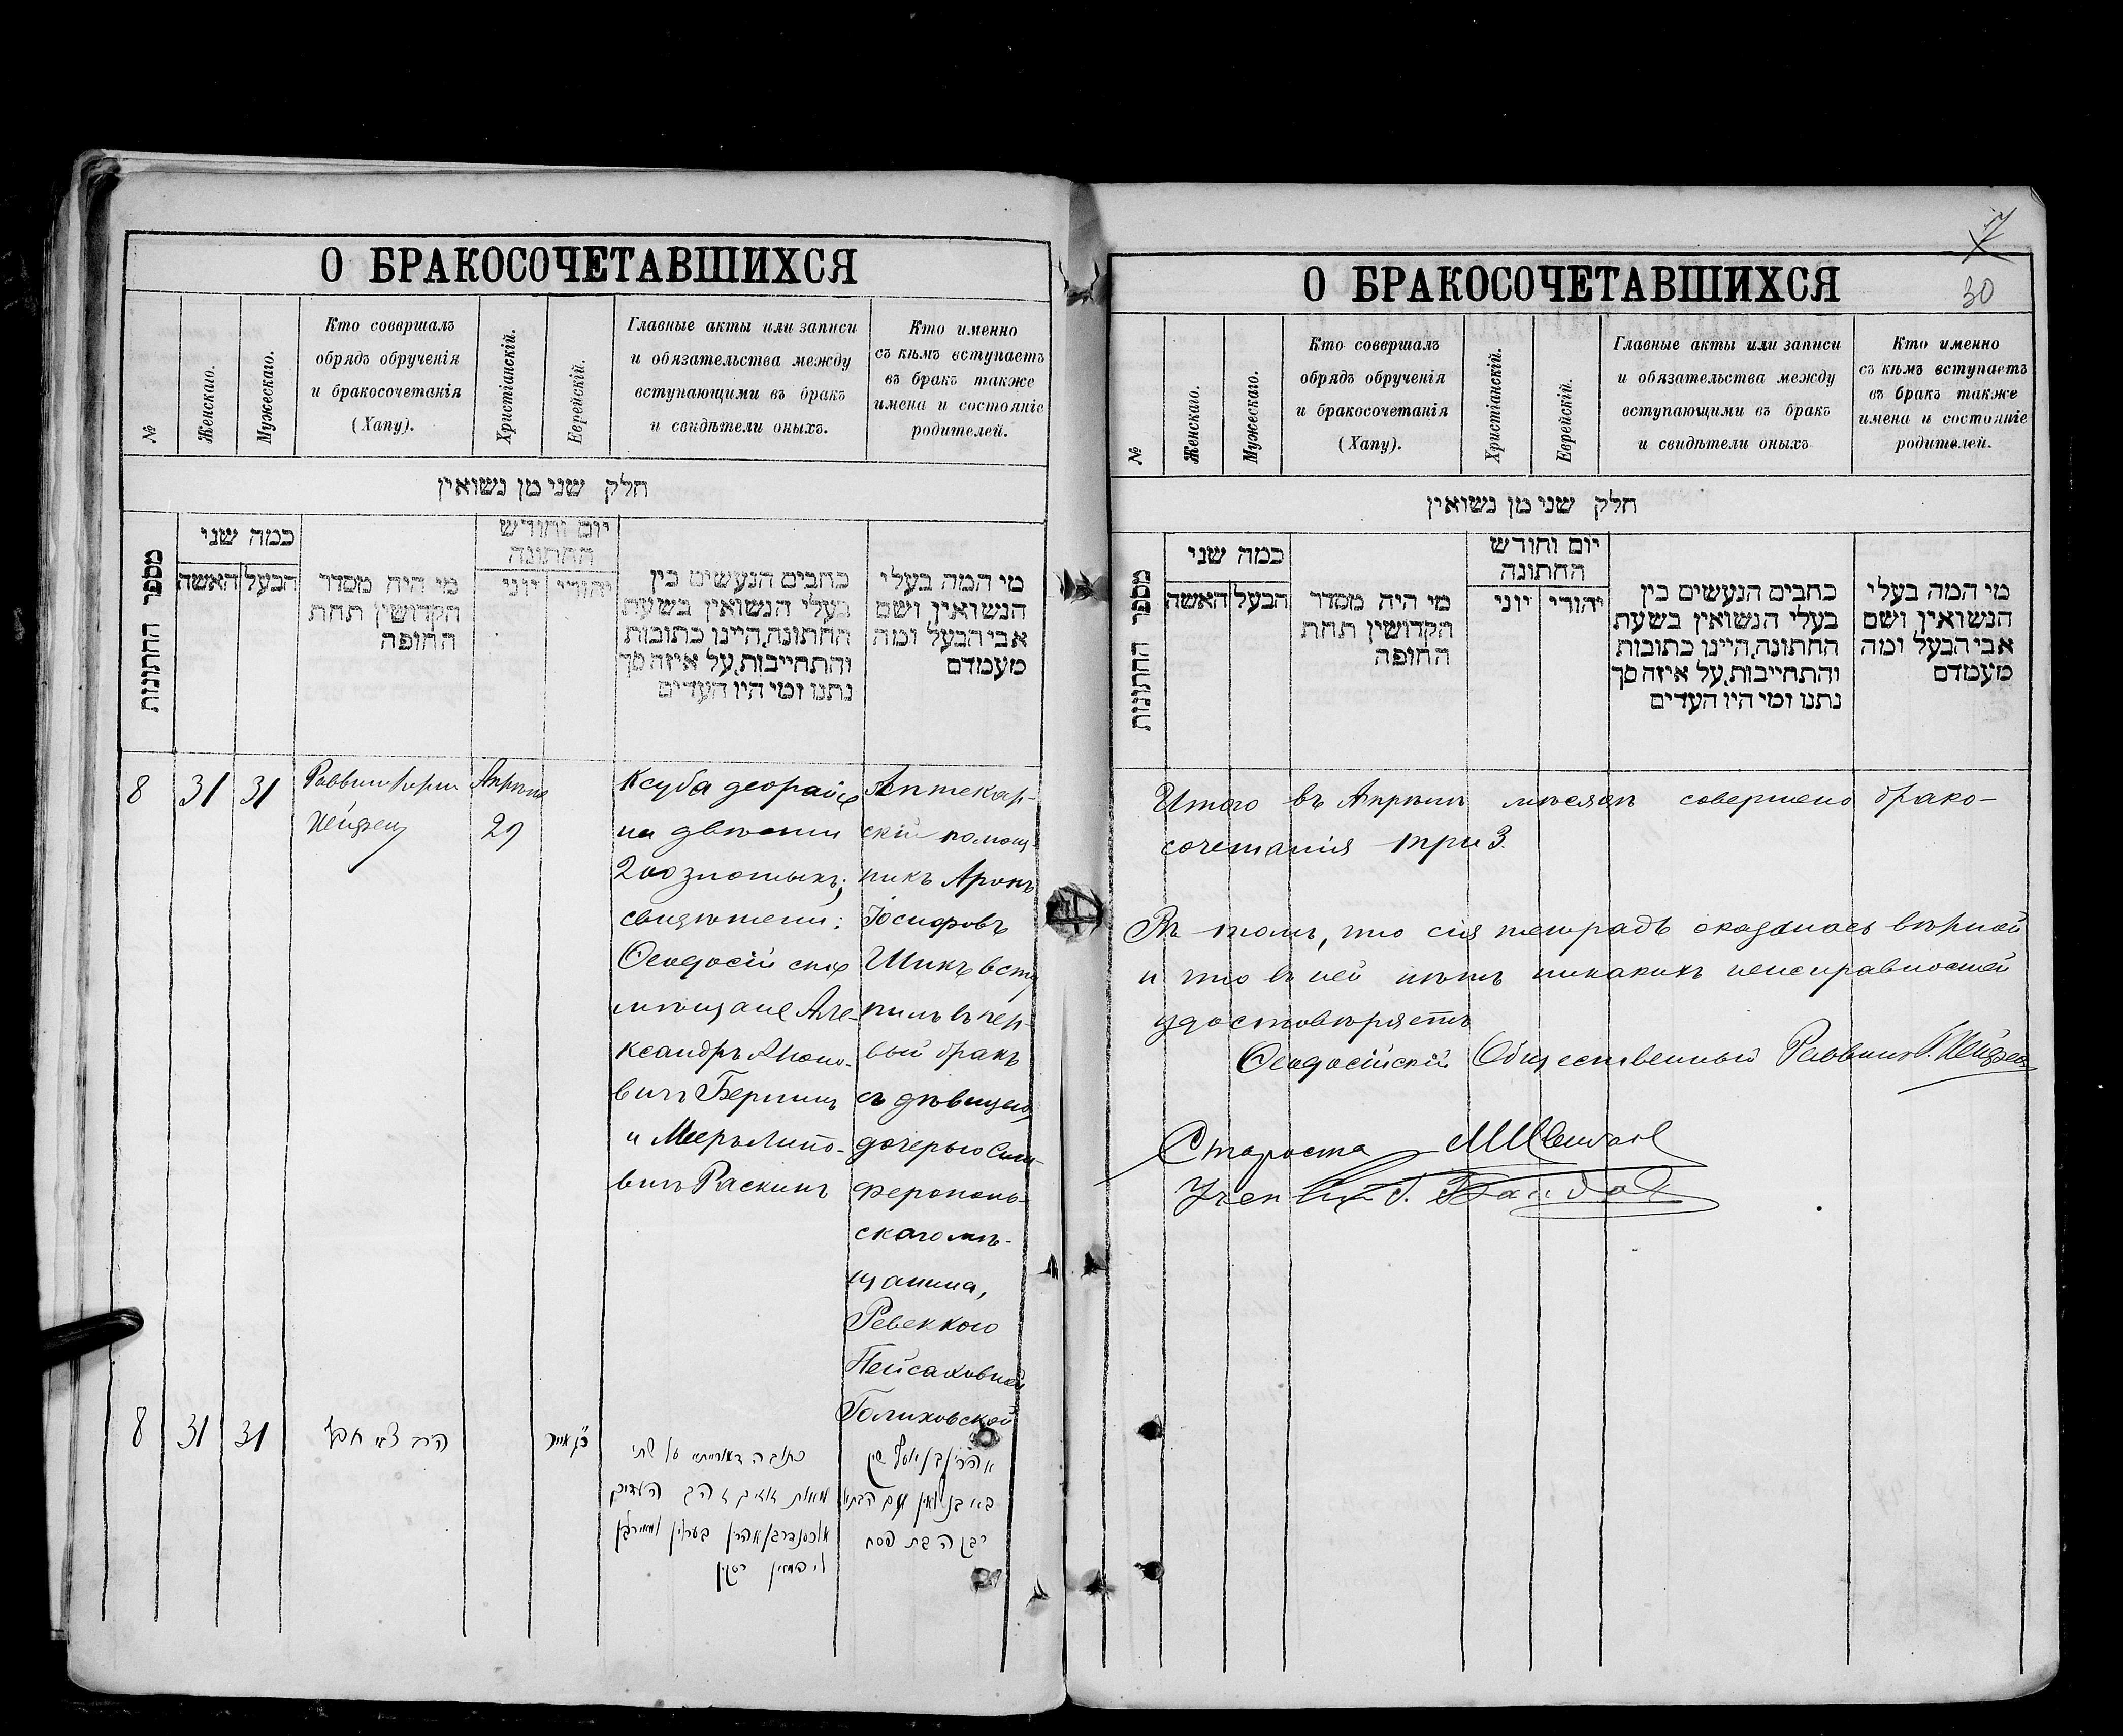 О БРАКОСОЧЕТАВШИХСЯ
№
Женскаго.
Мужескаго.
Кто совершалъ
обрядъ обрученія
и бракосочетанія
(Хапу).
Христіанскій.
Еврейскій.
Главные акты или записи
и обязательства между
вступающими въ бракъ
и свидѣтели оныхъ.
Кто именно
съ кѣмъ вступаетъ
въ бракъ также
имена и состояніе
родителей.
חלק שני מן נשואין
מספר החתונות
כמה שני
האשה
הבעל
מי היה מסדר
הקדושין תחת
החופה
יום וחודש
החתונה
יוני
יהודי
כתבים הנעשים בין
בעלי הנשואין בשעת
החתונה, היינו כתובות
והתחייבות, על איזה סך
נתנו ומי היו העדים
מי המה בעלי
הנשואין ושם
אבי הבעל ומה
מעמדם
8
31
31
Раввинъ
Апрѣля
29
Ксуба деорайсе
на двѣсти
200 злотыхъ;
свидѣтели:
Ѳеодосійскіе
мѣщане Але-
ксандръ
вичъ
и Мееръ Липо-
вичъ Раскинъ
Аптекар-
скій помощ-
никъ Аронъ
Іосифовъ
Шикъ всту
пилъ въ пер-
вый бракъ
съ дѣвицею,
дочерью Сим-
ферополь-
скаго мѣ-
щанина,
Ревеккою
Пейсаховной
Голиховской
8
31
31
כתובה דאורייתא על שתי
מאות זהב העדים
אהרן בן יוסף שיק
רבקה בת פסח
О БРАКОСОЧЕТАВШИХСЯ
7
30
№
Женскаго.
Мужескаго.
Кто совершалъ
обрядъ обрученія
и бракосочетанія
(Хапу).
Христіанскій.
Еврейскій.
Главные акты или записи
и обязательства между
вступающими въ бракъ
и свидѣтели оныхъ
Кто именно
съ кѣмъ вступаетъ
въ бракъ также
имена и состояніе
родителей.
חלק שני מן נשואין
מספר החתונות
כמה שני
האשה
הבעל
מי היה מסדר
הקדושין תחת
החופה
יום וחודש
החתונה
יוני
יהודי
כתבים הנעשים בין
בעלי הנשואין בשעת
החתונה, היינו כתובות
והתחייבות, על איזה סך
נתנו ומי היו העדים
מי המה בעלי
הנשואין ושם
אבי הבעל ומה
מעמדם
Итого въ Апрѣлѣ мѣсяцѣ совершено брако-
сочетанія три 3.
Въ томъ, что сія тетрадь оказалась вѣрной
и что въ ней нѣтъ никакихъ неисправностей
удостовѣряетъ
Ѳеодосійскій Общественный Раввинъ
Староста
Учен